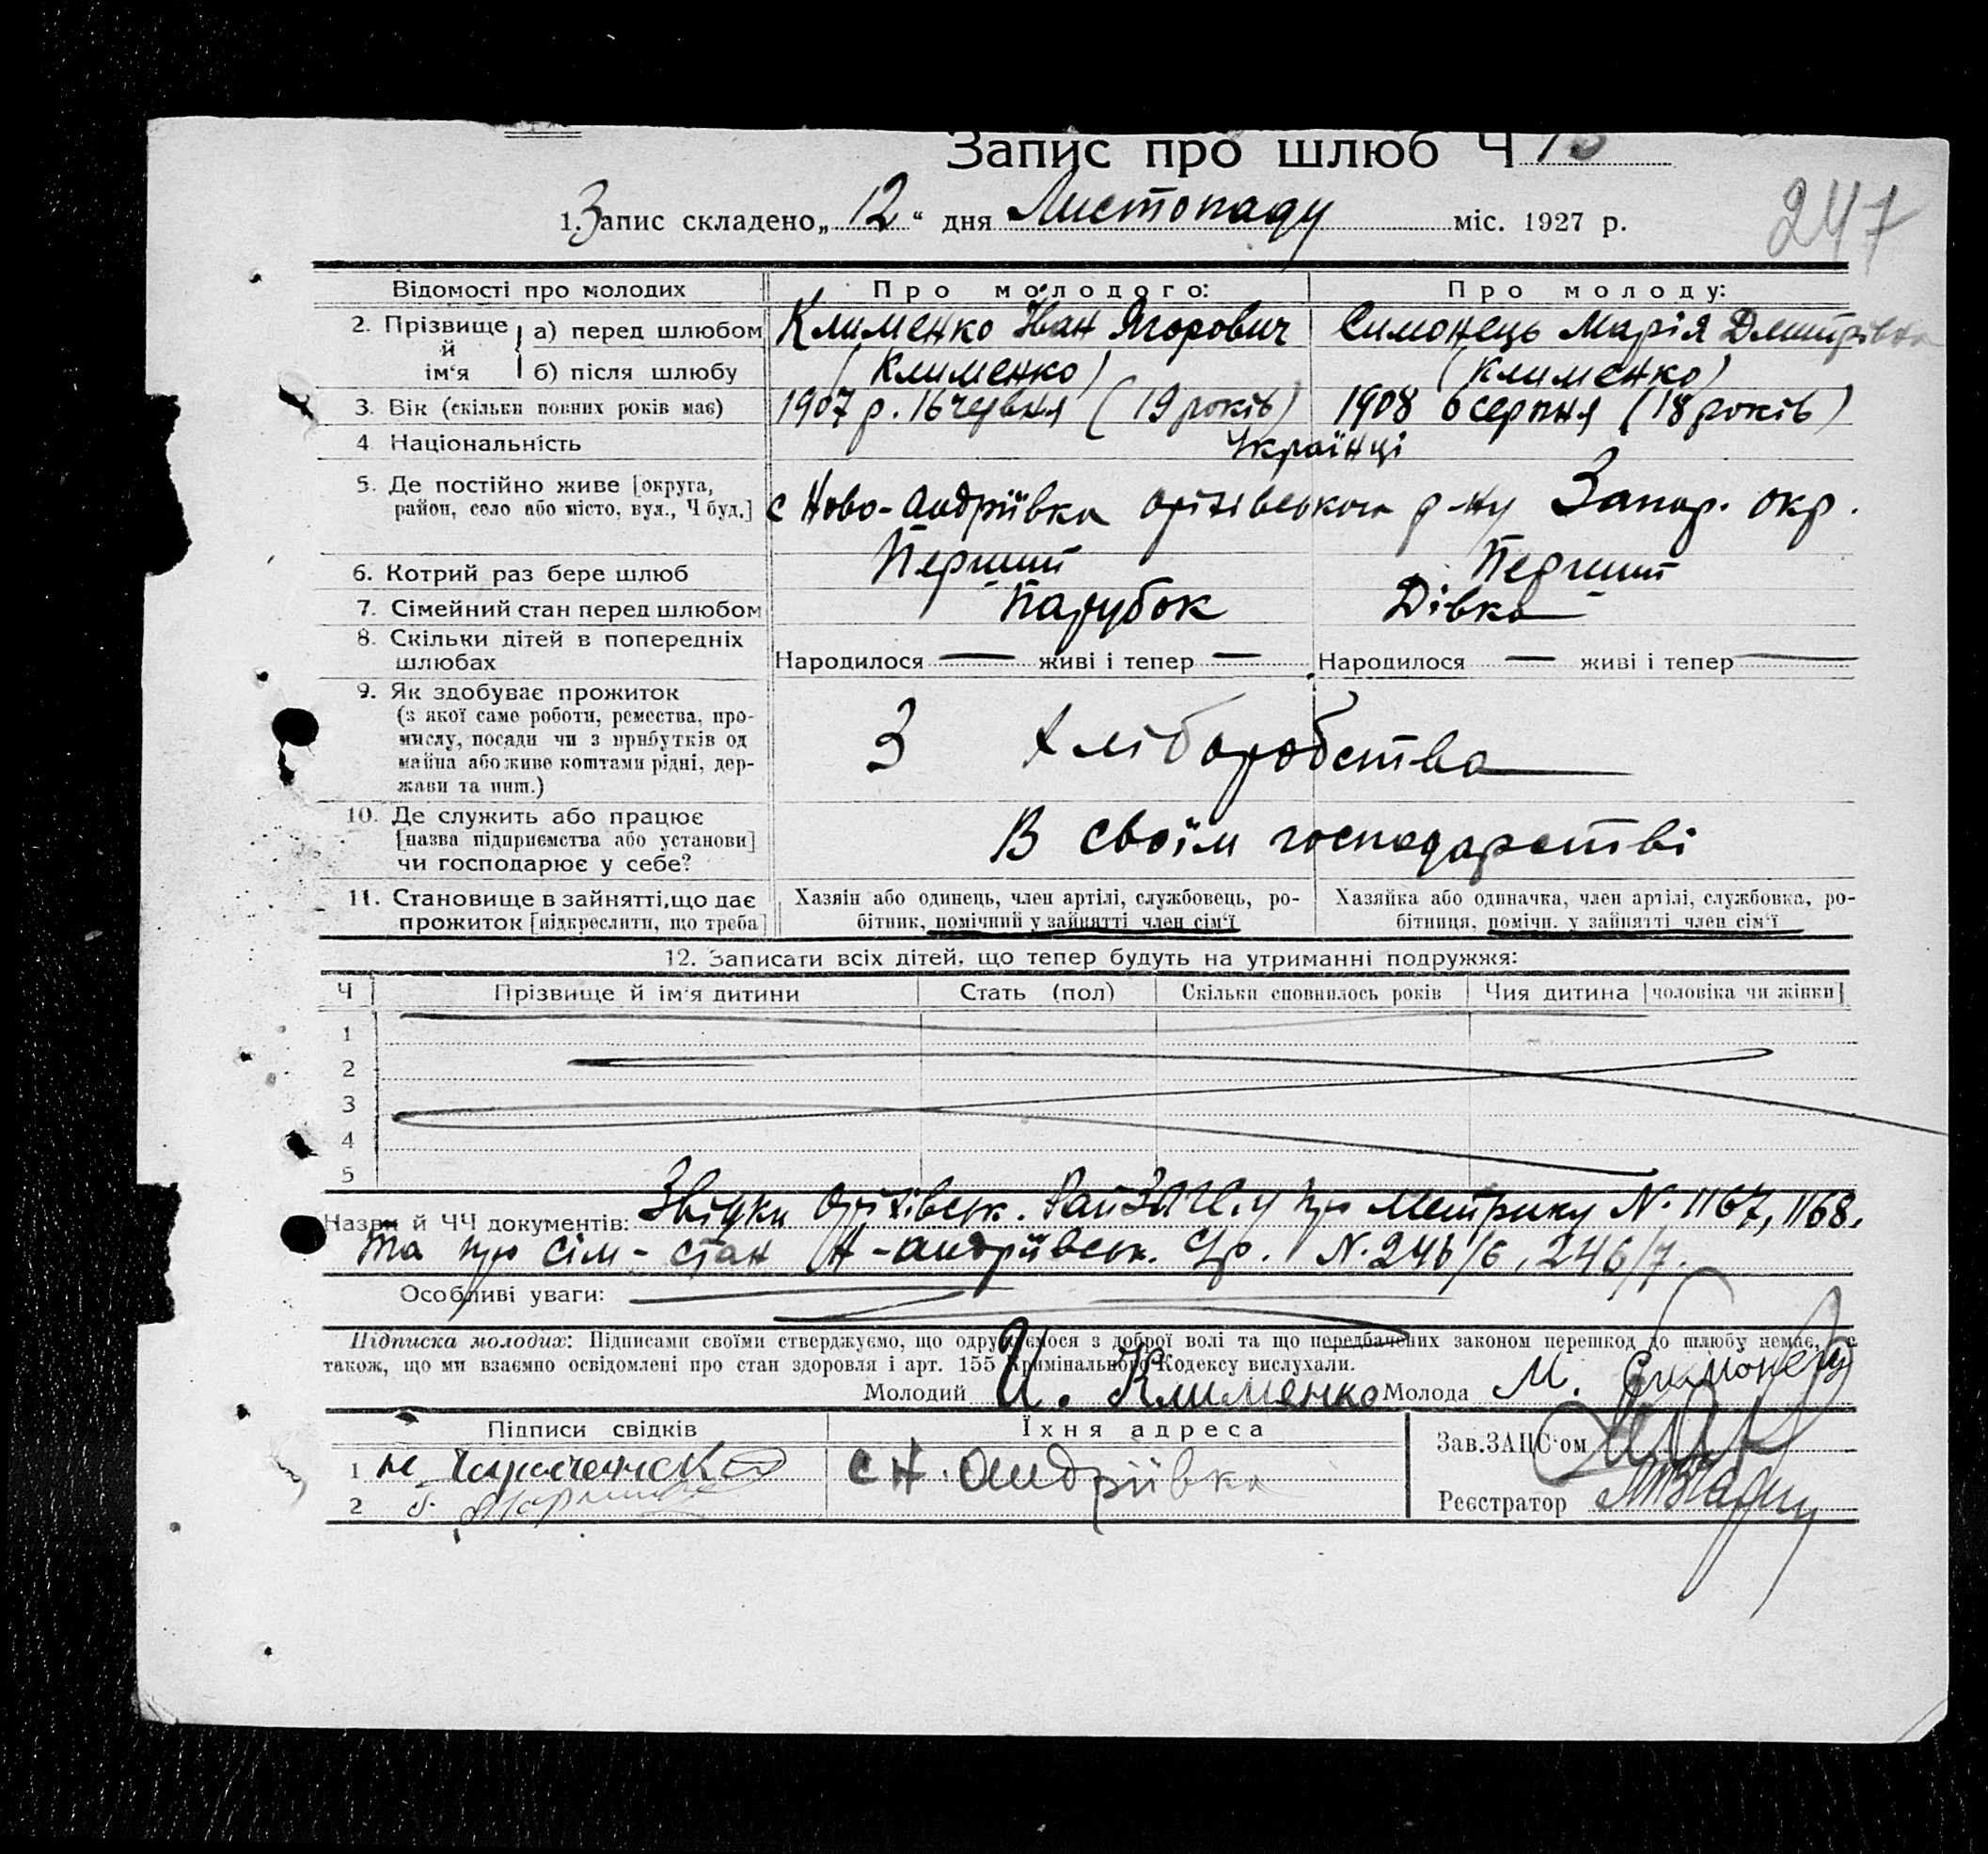 Запис про шлюб Ч
1. Запис складено „ 12 “ дня Листопаду міс. 1927 р.
247
Відомості про молодих Про молодого: Про молоду:
2. Прізвище й ім‘я а) перед шлюбом Клименко Іван Ягорович Симонець Марія Дмитрівна
б) після шлюбу (Клименко) (Клименко)
3. Вік (скільки повних років має) 1907 р. 16 червня (19 років) 1908 6 серпня (18 років)
4 Національність Українці
5. Де постійно живе [округа,
район, село або місто, вул., Ч буд.] с Ново-Андріївка Оріхівського р-ну Запор. окр.
6. Котрий раз бере шлюб Перший Перший
7. Сімейний стан перед шлюбом Парубок Дівка
8. Скільки дітей в попередніх
шлюбах Народилося — живі і тепер — Народилося — живі і тепер —
9. Як здобуває прожиток
(з якої саме роботи, ремества, про-
мислу, посади чи з прибутків од
майна або живе коштами рідні, дер-
жави та инш.) З Хліборобства
10. Де служить або працює
[назва підприємства або установи]
чи господарює у себе? В своїм господарстві
11. Становище в зайнятті, що дає Хазяін або одинець, член артілі, службовець, ро- Хазяйка або одиначка, член артілі, службовка, ро-
прожиток [підкреслити, що треба] бітник, помічний у зайнятті член сім‘ї бітниця, помічн. у зайнятті член сім‘ї
12. Записати всіх дітей, що тепер будуть на утриманні подружжя:
Ч Прізвище й ім‘я дитини Стать (пол) Скільки сповнилось років Чия дитина [чоловіка чи жінки]
1
2
3
4
5
Назви й ЧЧ документів: Звідки Оріхівськ. РайЗАГС.у про Метрику N. 1167, 1168.
та про сім-стан Н-Андріївськ. N. 246/6, 246/7.
Особливі уваги:
Підписка молодих: Підписами своїми стверджуємо, що одружуємося з доброї волі та що передбачених законом перешкод до шлюбу немає, а
також, що ми взаємно освідомлені про стан здоровля і арт. 155 Кримінального Кодексу вислухали.
Молодий И. Клименко Молода М. Симонець
Підписи свідків Їхня адреса Зав. ЗАЦС‘ом
1 с Н. Андріівка
2 Реєстратор